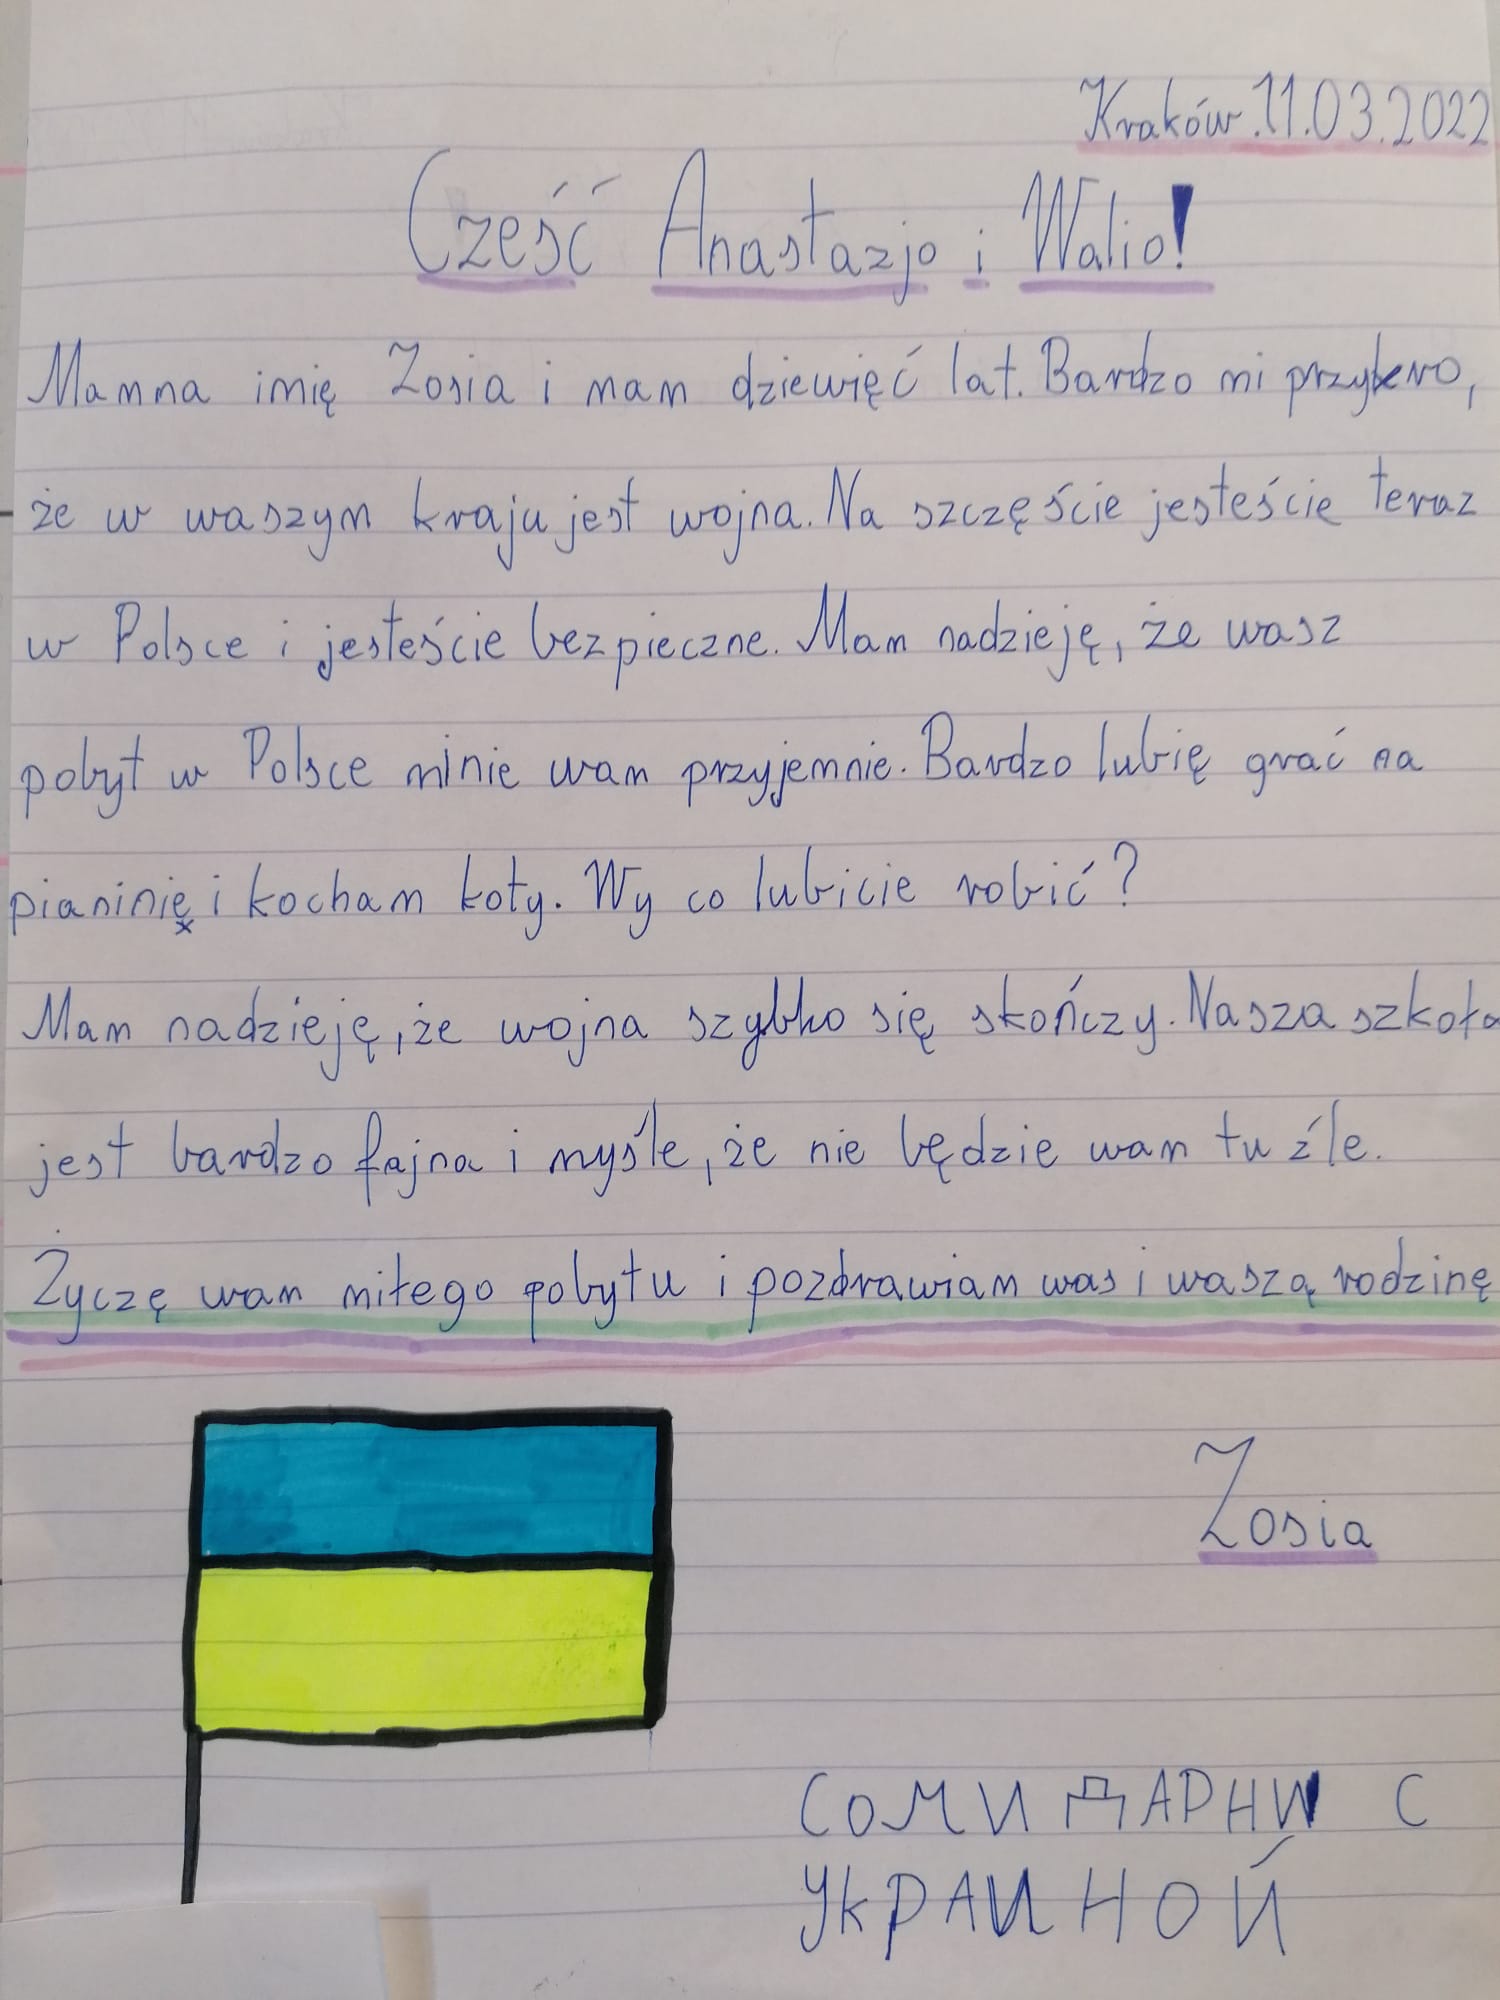 Kraków.11.03.2022
Cześć Anastazjo i Walio!
Mamna imię Zosia i mam dziewięć lat. Bardzo mi przykro,
że w waszym kraju jest wojna. Na szczęście jesteście teraz
w Polsce i jesteście bezpieczne. Mam nadzieję, że wasz
pobyt w Polsce minie wam przyjemnie. Bardzo lubię grać na
pianinię i kocham koty. Wy co lubicie robić?
Mam nadzieję, że wojna szybko się skończy. Nasza szkoła
jest bardzo fajna i myśle, że nie będzie wam tu źle.
Życzę wam miłego pobytu i pozdrawiam was i waszą rodzinę
Zosia
СОМИДАРНИ С
УКРАИНОЙ